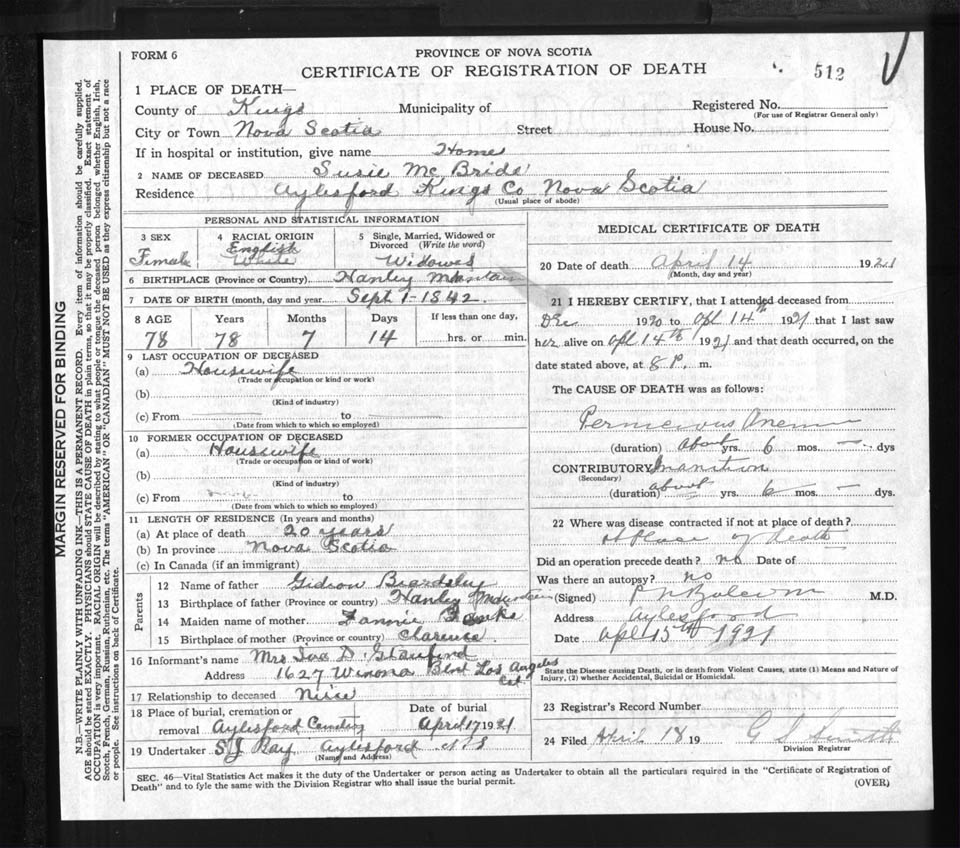 FORM 6
PROVINCE OF NOVA SCOTIA
CERTIFICATE OF REGISTRATION OF DEATH
512
1 PLACE OF DEATH—
County of Kings Municipality of Registered No.
(For use of Registrar General only)
City or Town Nova Scotia Street House No.
If in hospital or institution, give name Home
2 NAME OF DECEASED Susie Mc Bride
Residence Aylesford Kings Co Nova Scotia
(Usual place of abode)
PERSONAL AND STATISTICAL INFORMATION
3 SEX 4 RACIAL ORIGIN 5 Single, Married, Widowed or Divorced (Write the word)
Female English White Widowed
6 BIRTHPLACE (Province or Country) Hanley Mountain
7 DATE OF BIRTH (month, day and year Sept 1-1842.
8 AGE Years Months Days If less than one day,
78 78 7 14 hrs. or min.
9 LAST OCCUPATION OF DECEASED
(a) Housewife
(Trade or occupation or kind or work)
(b)
(Kind of industry)
(c) From to
(Date from which to which so employed)
10 FORMER OCCUPATION OF DECEASED
(a) Housewife
(Trade or occupation or kind of work)
(b)
(Kind of industry)
(c) From to
(Date from which to which so employed)
11 LENGTH OF RESIDENCE (In years and months)
(a) At place of death 20 years
(b) In province Nova Scotia
(c) In Canada (if an immigrant)
Parents
12 Name of father Gideon Beardsley
13 Birthplace of father (Province or country) Hanley Mountain
14 Maiden name of mother Fannie
15 Birthplace of mother (Province or country) Clarence.
16 Informant's name Mrs Ina D. Stanford
Address 1627 Winona Blvd Los Angeles Cal.
17 Relationship to deceased Niece
18 Place of burial, cremation or removal Aylesford Cemetery
Date of burial April 17 1921
19 Undertaker S J Ray Aylesford N S
(Name and Address)
MEDICAL CERTIFICATE OF DEATH
20 Date of death April 14 1921
(Month, day and year)
21 I HEREBY CERTIFY, that I attended deceased from
Dec 1920 to Apl 14th 1921 that I last saw
her alive on Apl 14th 1921 and that death occurred, on the
date stated above, at 8 P. m.
The CAUSE OF DEATH was as follows:
Pernicious Anemia
(duration) about yrs. 6 mos. — dys
CONTRIBUTORY Inanition
(Secondary)
(duration) about yrs. 6 mos. — dys.
22 Where was disease contracted if not at place of death?
At Place of death
Did an operation precede death? no Date of
Was there an autopsy? no
(Signed) M.D.
Address Aylesford
Date Apl 15th 1921
State the Disease causing Death, or in death from Violent Causes, state (1) Means and Nature of
Injury, (2) whether Accidental, Suicidal or Homicidal.
23 Registrar's Record Number
24 Filed April 18 19 G S Smith
Division Registrar
SEC. 46—Vital Statistics Act makes it the duty of the Undertaker or person acting as Undertaker to obtain all the particulars required in the "Certificate of Registration of
Death" and to fyle the same with the Division Registrar who shall issue the burial permit.
(OVER)
MARGIN RESERVED FOR BINDING
N.B.—WRITE PLAINLY WITH UNFADING INK—THIS IS A PERMANENT RECORD. Every item of information should be carefully supplied.
AGE should be stated EXACTLY. PHYSICIANS should STATE CAUSE OF DEATH in plain terms, so that it may be properly classified. Exact statement of
OCCUPATION is very important. RACIAL ORIGIN will be described by stating to what people or tongue the deceased person belonged, whether English, Irish,
Scotch, French, German, Russian, Ruthenian, etc. The terms "AMERICAN" OR "CANADIAN" MUST NOT BE USED as they express citizenship but not a race
or people. See instructions on back of Certificate.